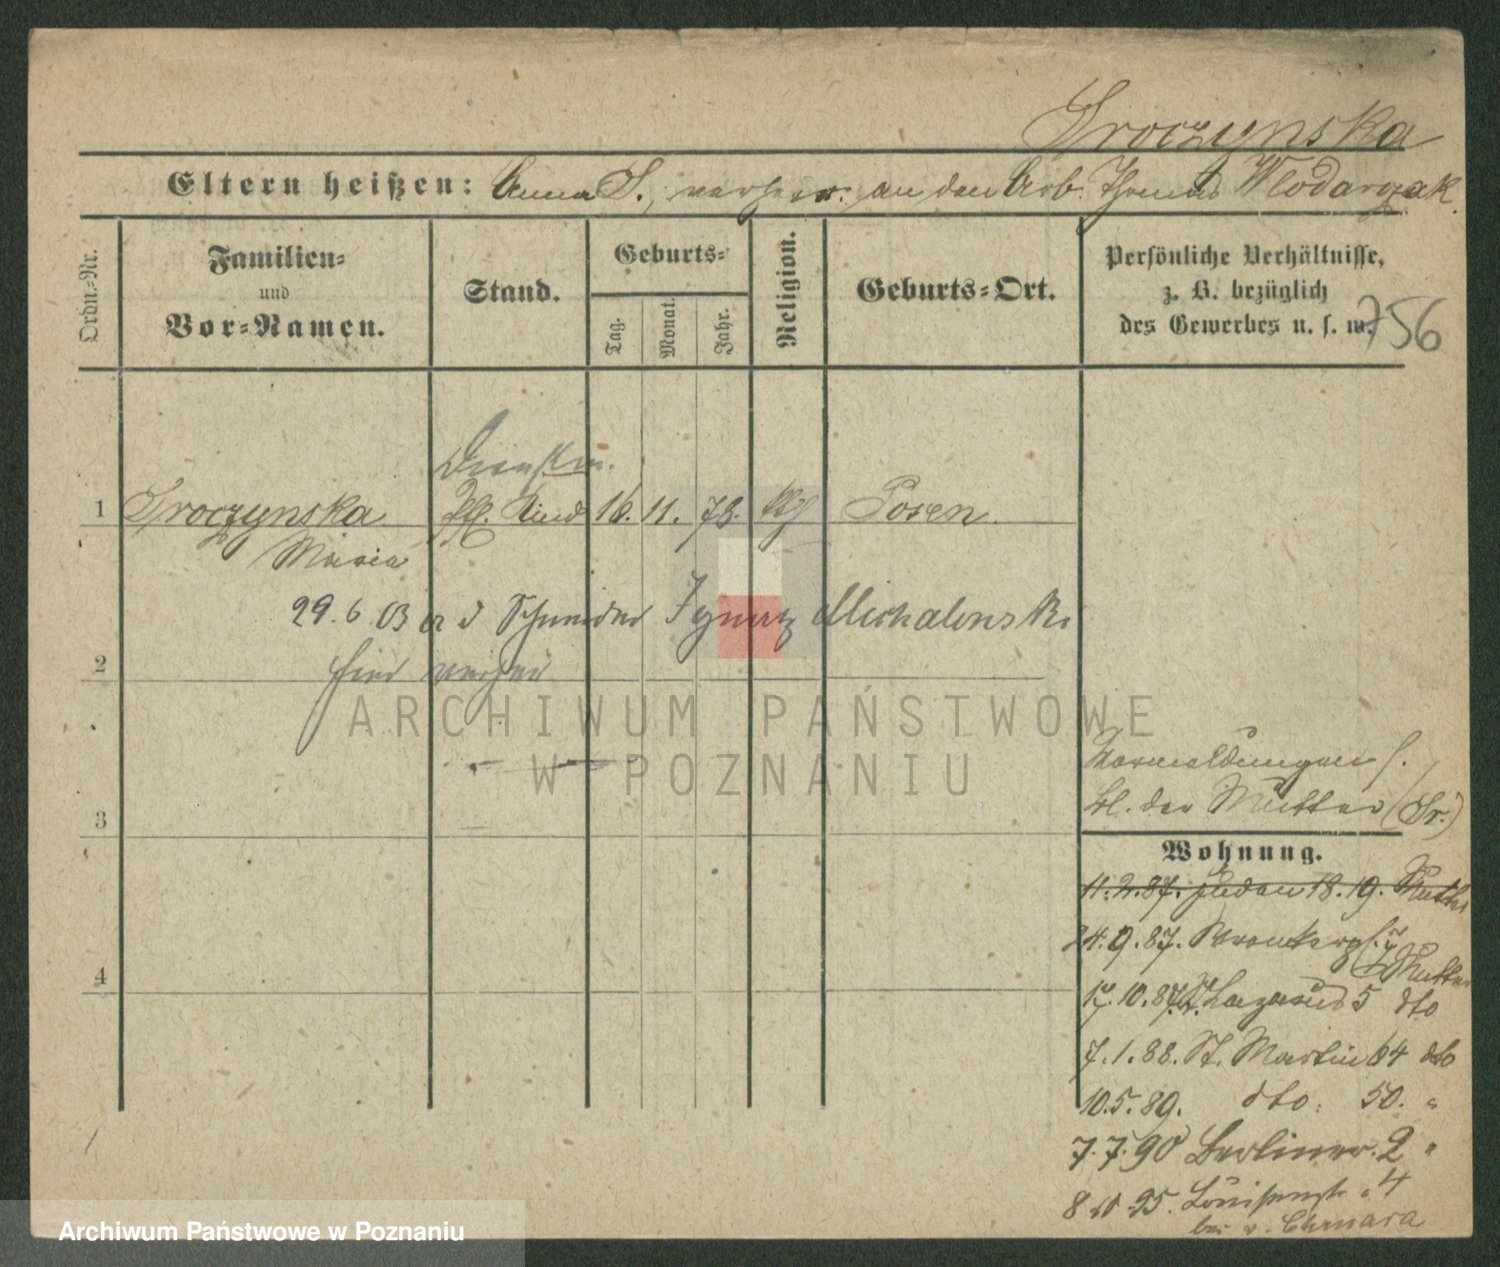 Sroczynska
Eltern heißen: Anna S., verheir. an den Arb. Thomas Wlodarczak.
Ordn.-Nr.
Familien-
und
Vor-Namen.
Stand.
Geburts-
Tag.
Monat.
Jahr.
Religion.
Geburts-Ort.
Persönliche Verhältnisse,
z. B. bezüglich
des Gewerbes u. s. w.
756
Dienstm.
1 Sroczynska Kind 16. 11. 78. Posen
Maria
29. 6. 03 Schneider Ignatz Michalowski
2 hier
3
4
Vormeldungen s.
Bl. der Mutter (Sr.)
Wohnung.
11. 2. 87. Juden 18. 19. Mutter
24. 9. 87. Mutter
17. 10. 87. St. Lazarus 5 dto
7. 1. 88. St. Martin 64 dto
10. 5. 89. dto. 50. "
7. 7. 90 Berliner. 2 "
8 95. Louisenstr. 4
bei v. Chmara
ARCHIWUM PAŃSTWOWE
W POZNANIU
Archiwum Państwowe w Poznaniu